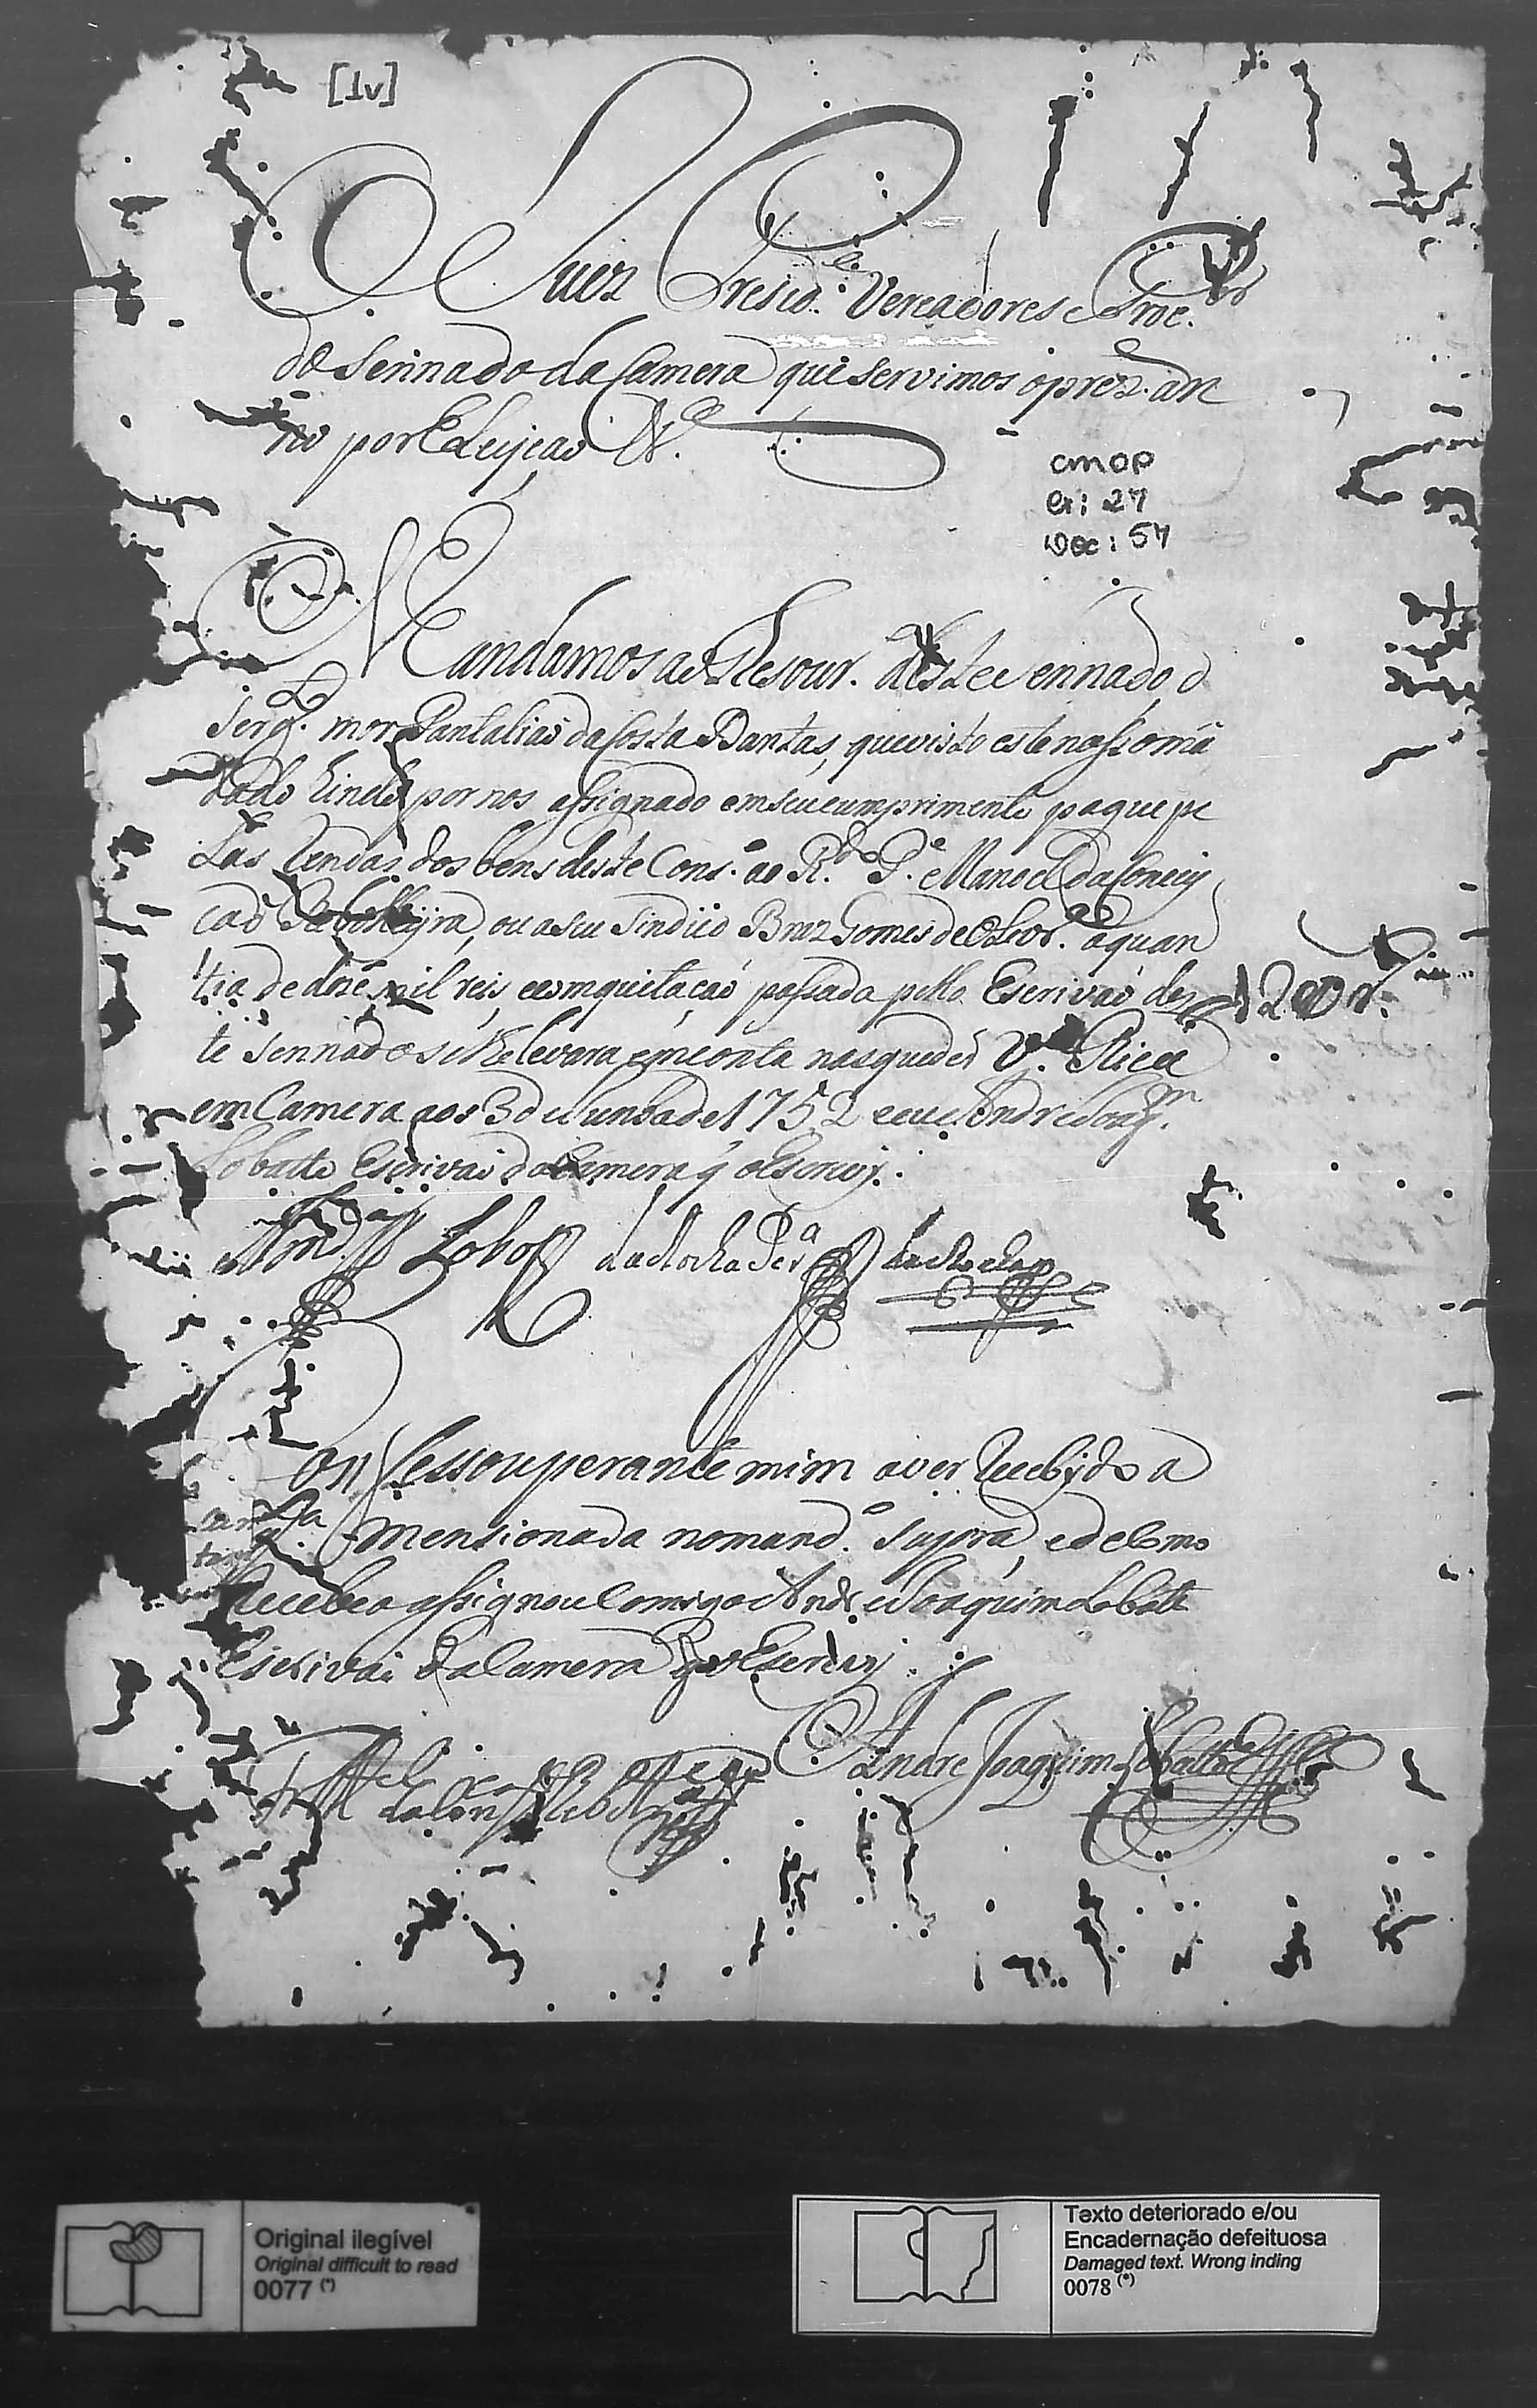 [1v]
O Juiz Presid.te Vereadores e Proc.or
do Sennado da Camera que servimos o prez. an
no por Eleyção &.ª
cmop
cx: 27
Doc: 57
Mandamos ao Thesour. deste Sennado o
Sarg.to mor Pantalião da Costa Dantas, que visto este nosso mã
dado hindo por nos assignado em seu cumprimento pague pe
Las Rendas dos bens deste Cons.º ao R.do P.e Manoel da Concey
ção, ou a seu Sindico Braz Gomes de Olivr.ª a quan
tia de doze mil reis, e com quitação passada pello Escrivão des
12000 r.s
te Sennado se lhe levara em conta nas que der V.ª Rica
em Camera aos 3 de Junho de 1752 e eu Andre Joaq.m
Lobatto Escrivão da Camera q o Escrevy.
Lobo da Rocha Per.ª da Rocha
Confessou perante mim aver Recebydo a
q.ta mensionada no mand.º supra, e de como
Recebeo assignou Comigo Andre Joaquim Lobatto
Escrivão da Camera q o Escrevy
Fr. M.el da Con.cam
Andre Joaquim Lobatto
Original ilegível
Original difficult to read
0077 (*)
Texto deteriorado e/ou
Encadernação defeituosa
Damaged text. Wrong inding
0078 (*)